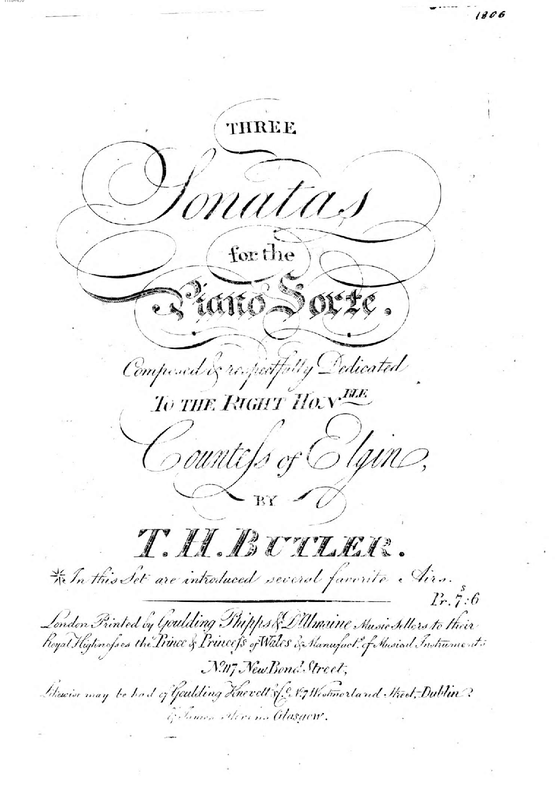 1806
THREE
Sonatas
for the
Piano Forte.
Composed & respectfully Dedicated
TO THE RIGHT HON.BLE
Counteſs of Elgin,
BY
T. H. BUTLER.
In this Set are introduced several favorite Airs.
Pr. 7s:6
London Printed by Goulding Phipps & D'Almaine Music Sellers to their
Royal Highnesses the Prince & Princeſs of Wales & Manufactrs. of Musical Instruments
No. 117 New Bond Street,
Likewise may be had of Goulding Knevett & Co. No. 7 Westmorland Street, Dublin
& James Glasgow.